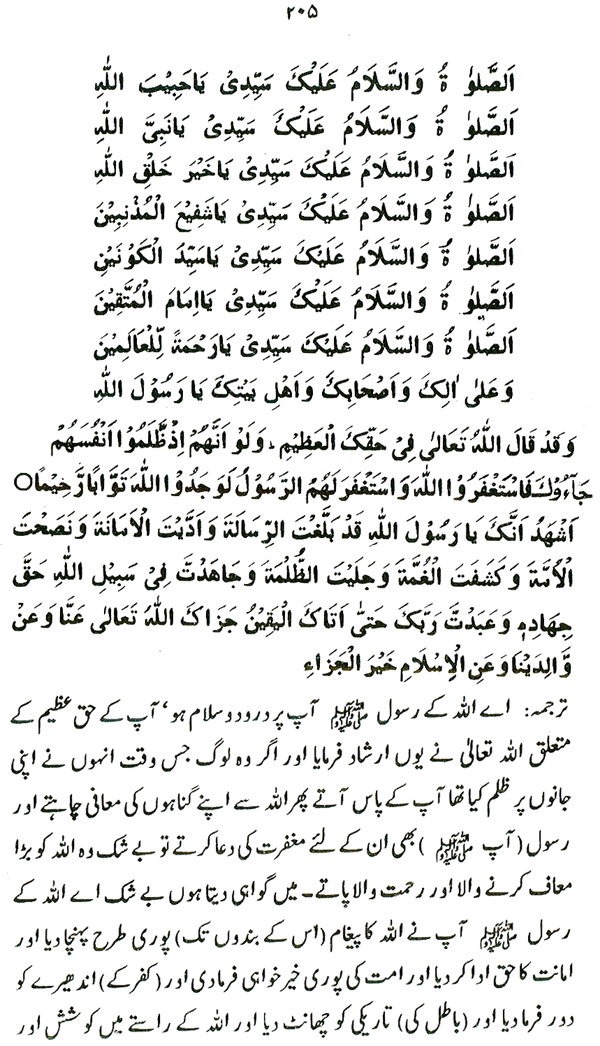 ۲۰۵
اَلصَّلوٰ ةُ وَالسَّلَامُ عَلَيْكَ سَيِّدِىْ يَاحَبِيْبَ اللهِ
اَلصَّلوٰ ةُ وَالسَّلَامُ عَلَيْكَ سَيِّدِىْ يَانَبِىَّ اللهِ
اَلصَّلوٰ ةُ وَالسَّلَامُ عَلَيْكَ سَيِّدِىْ يَاخَيْرَ خَلْقِ اللهِ
اَلصَّلوٰ ةُ وَالسَّلَامُ عَلَيْكَ سَيِّدِىْ يَاشَفِيْعَ الْمُذْنِبِيْنَ
اَلصَّلوٰ ةُ وَالسَّلَامُ عَلَيْكَ سَيِّدِىْ يَاسَيِّدَ الْكَوْنَيْنِ
اَلصَّلوٰ ةُ وَالسَّلَامُ عَلَيْكَ سَيِّدِىْ يَااِمَامَ الْمُتَّقِيْنَ
اَلصَّلوٰ ةُ وَالسَّلَامُ عَلَيْكَ سَيِّدِىْ يَارَحْمَةً لِّلْعَالَمِيْنَ
وَعَلىٰ اٰلِكَ وَاَصْحَابِكَ وَاَهْلِ بَيْتِكَ يَا رَسُوْلَ اللهِ
وَقَدْ قَالَ اللهُ تَعَالىٰ فِىْ حَقِّكَ الْعَظِيْمِ، وَلَوْ اَنَّهُمْ اِذْظَّلَمُوْا اَنْفُسَهُمْ
جَآءُوْكَ فَاسْتَغْفَرُوْا اللهَ وَاسْتَغْفَرَ لَهُمُ الرَّسُوْلُ لَوَجَدُوْا اللهَ تَوَّابًا رَّحِيْمًا○
اَشْهَدُ اَنَّكَ يَا رَسُوْلَ اللهِ قَدْ بَلَّغْتَ الرِّسَالَةَ وَاَدَّيْتَ الْاَمَانَةَ وَنَصَحْتَ
الْاُمَّةَ وَكَشَفْتَ الْغُمَّةَ وَجَلَيْتَ الظُّلْمَةَ وَجَاهَدْتَّ فِىْ سَبِيْلِ اللهِ حَقَّ
جِهَادِهٖ وَعَبَدْتَّ رَبَّكَ حَتىّٰ اَتَاكَ الْيَقِيْنُ جَزَاكَ اللهُ تَعَالىٰ عَنَّا وَعَنْ
وَّالِدَيْنَا وَعَنِ الْاِسْلَامِ خَيْرَ الْجَزَاءِ
ترجمہ: اے اللہ کے رسول ﷺ آپ پر درود و سلام ہو‘ آپ کے حق عظیم کے
متعلق اللہ تعالیٰ نے یوں ارشاد فرمایا اور اگر وہ لوگ جس وقت انہوں نے اپنی
جانوں پر ظلم کیا تھا آپ کے پاس آتے پھر اللہ سے اپنے گناہوں کی معافی چاہتے اور
رسول (آپ ﷺ) بھی ان کے لئے مغفرت کی دعا کرتے تو بے شک وہ اللہ کو بڑا
معاف کرنے والا اور رحمت والا پاتے۔ میں گواہی دیتا ہوں بے شک اے اللہ کے
رسول ﷺ آپ نے اللہ کا پیغام (اس کے بندوں تک) پوری طرح پہنچا دیا اور
امانت کا حق ادا کر دیا اور امت کی پوری خیر خواہی فرمادی اور (کفر کے) اندھیرے کو
دور فرما دیا اور (باطل کی) تاریکی کو چھانٹ دیا اور اللہ کے راستے میں کوشش اور